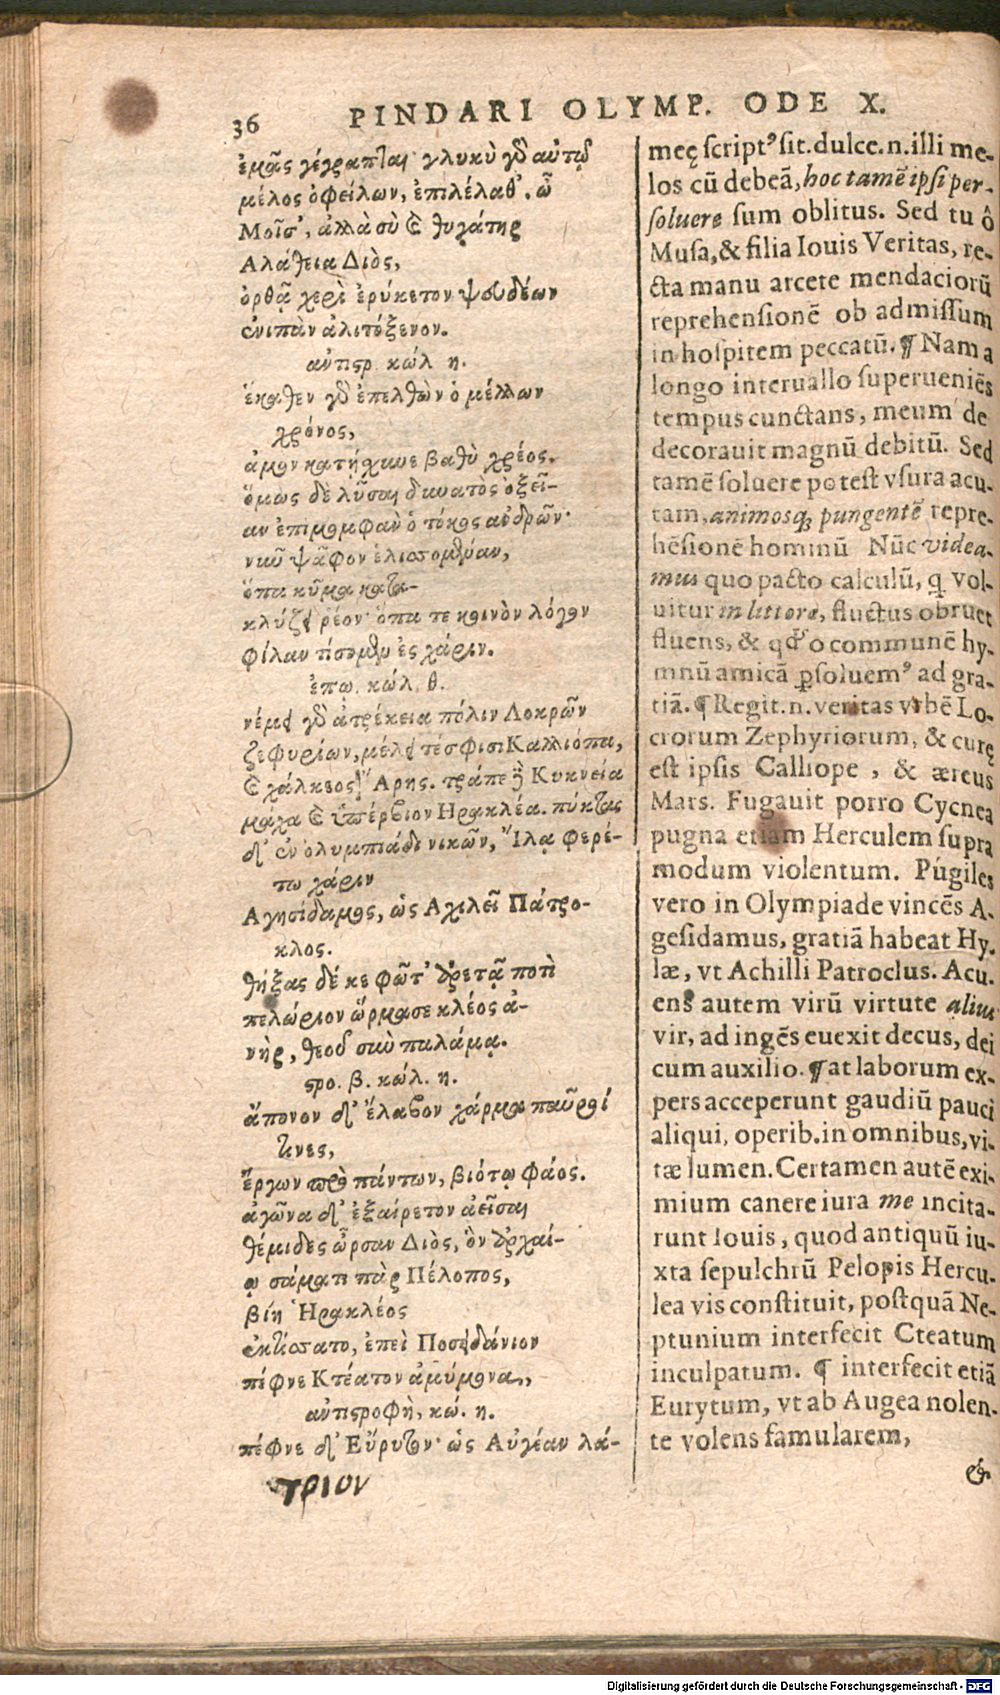 36 PINDARI OLYMP. ODE X.
ἐμᾶς γέγραπται· γλυκὺ γὰρ αὐτῷ
μέλος ὀφείλων, ἐπιλέλαθ'. ὦ
Μοῖσ', ἀλλὰ σὺ καὶ θυγάτηρ
Αλάθεια Διὸς,
ὀρθᾷ χερὶ ἐρύκετον ψευδέων
ἐνιπὰν ἀλιτόξενον.
ἀντιστρ. κώλ. η.
ἕκαθεν γὰρ ἐπελθὼν ὁ μέλλων
χρόνος,
ἀμὸν κατήχυνε βαθὺ χρέος.
ὅμως δὲ λῦσαι δυνατὸς ὀξεῖ-
αν ἐπιμομφὰν ὁ τόκος ἀνδρῶν·
νῦν ψᾶφον ἑλισσομέναν,
ὅπα κῦμα κατα-
κλύζει ῥέον· ὅπα τε κοινὸν λόγον
φίλαν τίσομεν ἐς χάριν.
ἐπῳ. κώλ. θ.
νέμει γὰρ ἀτρέκεια πόλιν Λοκρῶν
ζεφυρίων, μέλει τέ σφισι Καλλιόπα,
καὶ χάλκεος Ἄρης. τράπε δὲ Κυκνεία
μάχα καὶ ὑπέρβιον Ηρακλέα. πύκτας
δ' ἐν ὀλυμπιάδι νικῶν, Ἴλᾳ φερέ-
τω χάριν
Αγησίδαμος, ὡς Αχιλεῖ Πάτρο-
κλος.
θήξας δέ κε φῶτ' ἀρετᾷ ποτὶ
πελώριον ὥρμασε κλέος ἀ-
νὴρ, θεοῦ σὺν παλάμᾳ.
στρο. β. κώλ. η.
ἄπονον δ' ἔλαβον χάρμα παῦροί
τινες,
ἔργων πρὸ πάντων, βιότῳ φάος.
ἀγῶνα δ' ἐξαίρετον ἀεῖσαι
θέμιδες ὦρσαν Διὸς, ὃν ἀρχαί-
ῳ σάματι πὰρ Πέλοπος,
βίη Ἡρακλέος
ἐκτίσσατο, ἐπεὶ Ποσειδάνιον
πέφνε Κτέατον ἀμύμονα,
ἀντιστροφὴ, κώ. η.
πέφνε δ' Εὔρυτον· ὡς Αὐγέαν λά-
τριον
meę script⁹ sit. dulce.n. illi me-
los cū debeā, hoc tamē ipsi per-
soluere sum oblitus. Sed tu ô
Musa, & filia Iouis Veritas, re-
cta manu arcete mendaciorū
reprehensionē ob admissum
in hospitem peccatū. ¶ Nam a
longo interuallo superueniēs
tempus cunctans, meum de
decorauit magnū debitū. Sed
tamē soluere potest vsura acu-
tam, animosq; pungentē repre-
hēsionē hominū Nūc videa-
mus quo pacto calculū, q̄ vol-
uitur in littore, fluctus obruet
fluens, & qd' o communē hy-
mnū amicā ꝑsoluem⁹ ad gra-
tiā. ¶ Regit.n. veritas vrbē Lo-
crorum Zephyriorum, & curę
est ipsis Calliope, & æreus
Mars. Fugauit porro Cycnea
pugna etiam Herculem supra
modum violentum. Púgiles
vero in Olympiade vincēs A-
gesidamus, gratiā habeat Hy-
læ, vt Achilli Patroclus. Acu-
ens autem virū virtute alius
vir, ad ingēs euexit decus, dei
cum auxilio. ¶ at laborum ex-
pers acceperunt gaudiū pauci
aliqui, operib. in omnibus, vi-
tæ lumen. Certamen autē exi-
mium canere iura me incita-
runt Iouis, quod antiquū iu-
xta sepulchrū Pelopis Hercu-
lea vis constituit, postquā Ne-
ptunium interfecit Cteatum
inculpatum. ¶ interfecit etiā
Eurytum, vt ab Augea nolen-
te volens famularem,
&
Digitalisierung gefördert durch die Deutsche Forschungsgemeinschaft - DFG